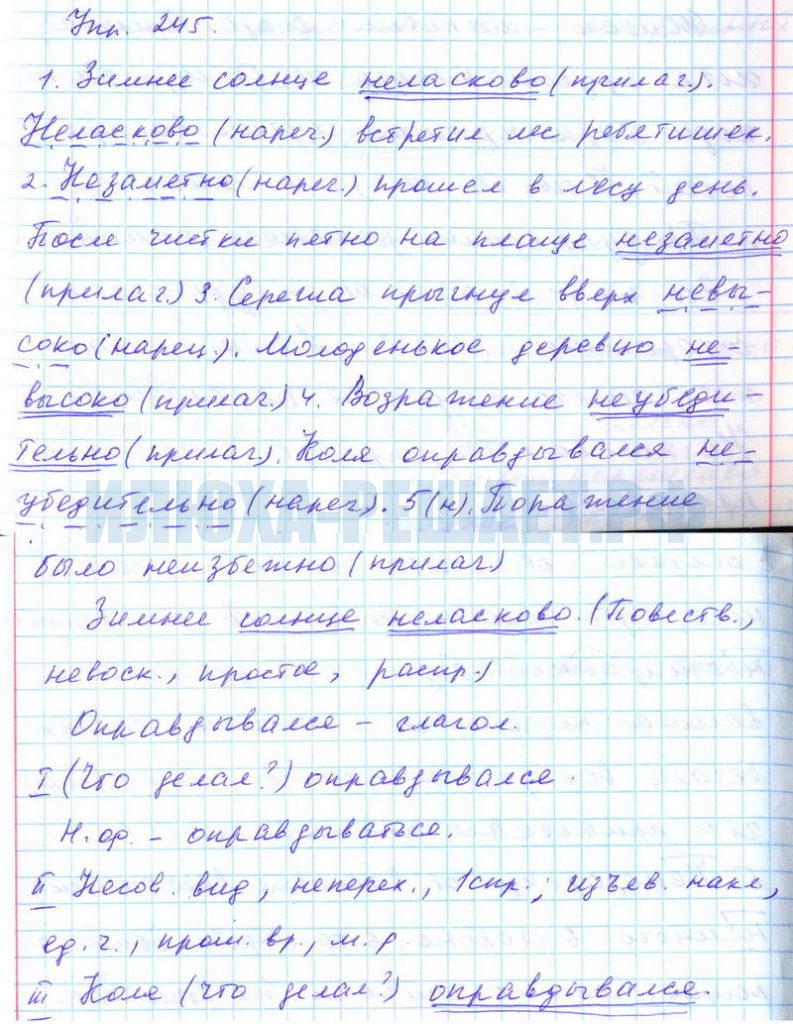 Упр. 245.
1. Зимнее солнце неласково (прилаг.).
Неласково (нареч.) встретил лес ребятишек.
2. Незаметно (нареч.) прошел в лесу день.
После чистки пятно на плаще незаметно
(прилаг.) 3. Сережа прыгнул вверх невы-
соко (нареч.). Молоденькое деревцо не-
высоко (прилаг.) 4. Возражение неубеди-
тельно (прилаг.). Коля оправдывался не-
убедительно (нареч.). 5(н). Поражение
ИЛЮХА-РЕШАЕТ.РФ
было неизбежно (прилаг)
Зимнее солнце неласково. (Повеств.,
невоск., простое, распр.)
Оправдывался – глагол.
I (Что делал?) оправдывался.
Н.ф. – оправдываться.
II Несов. вид, неперех., 1 спр., изъев. накл,
ед. ч., прош. вр., м. р
III Коля (что делал?) оправдывался.